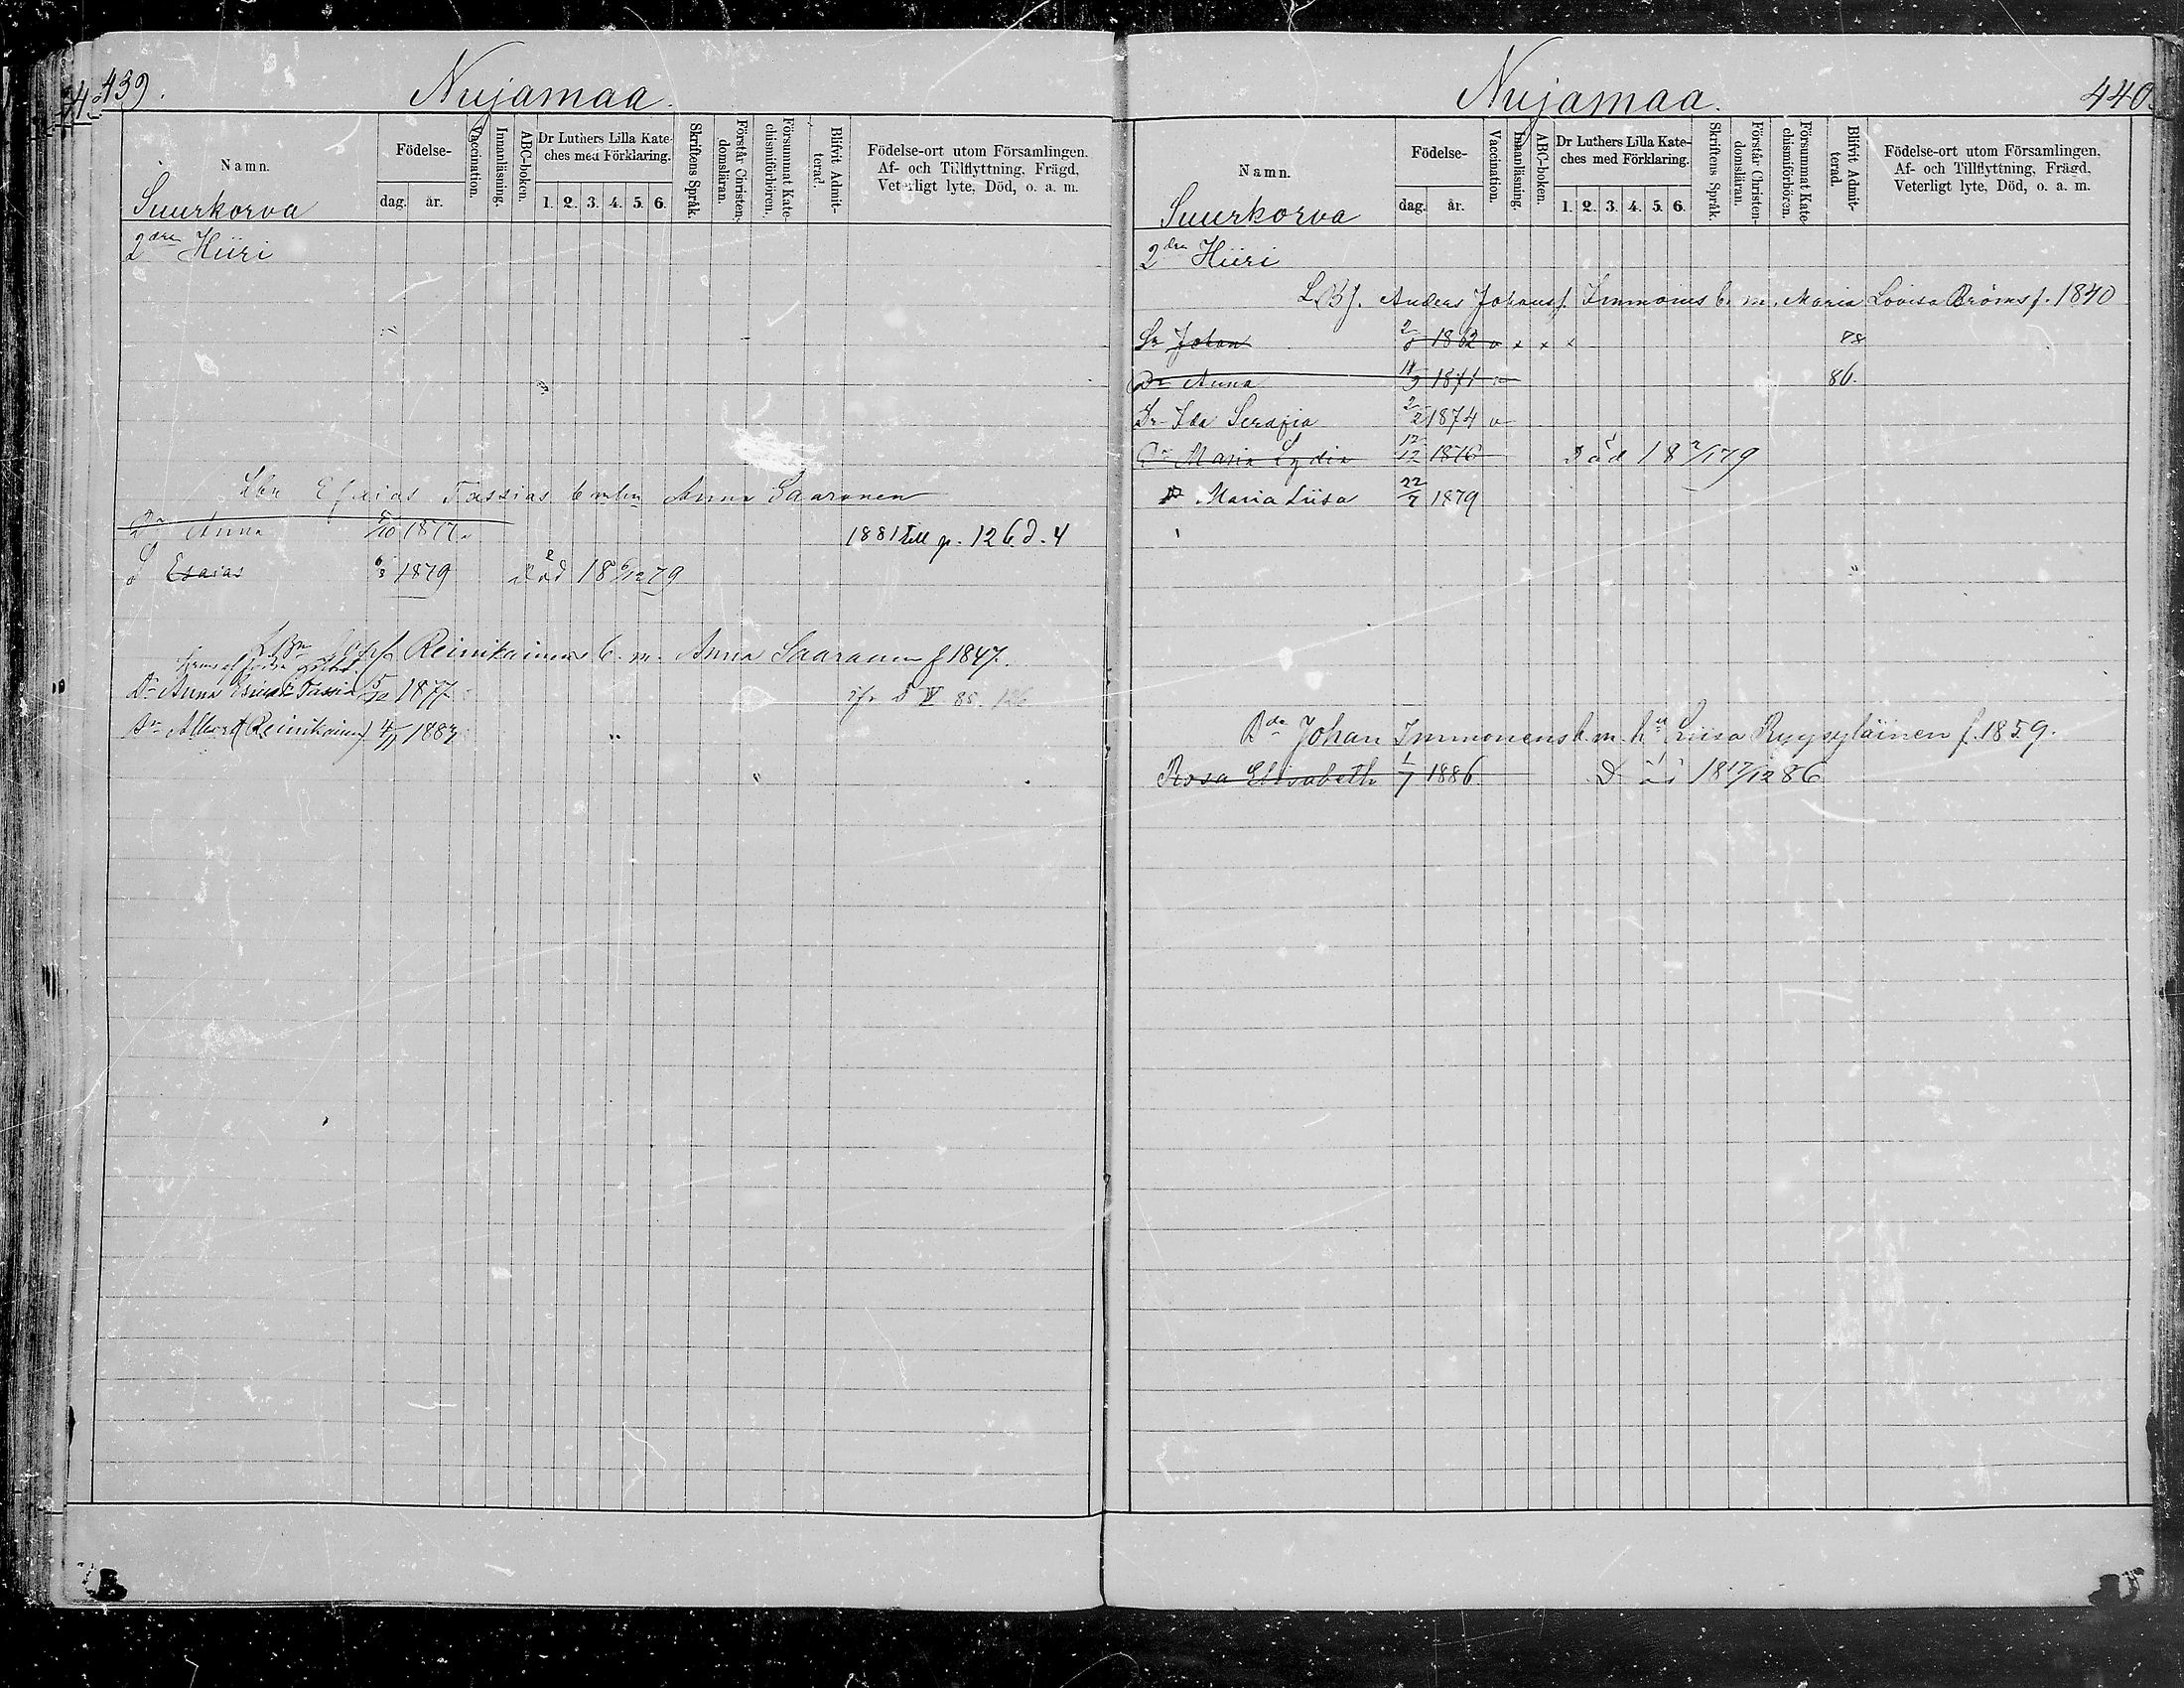 439.
Nujamaa.
Namn.
Födelse-
dag. år.
Vaccination.
Innanläsning.
ABC-boken.
Dr Luthers Lilla Kate-
ches med Förklaring.
1. 2. 3. 4. 5. 6.
Skriftens Språk.
Förstår Christen-
domsläran.
Försummat Kate-
chismiförhören.
Blifvit Admit-
terad.
Födelse-ort utom Församlingen.
Af- och Tillflyttning, Frägd,
Veterligt lyte, Död, o. a. m.
Suurkorva
2dra Hiiri
Tassias Anna Saaranen
Anna 5/10 1877 1881 till p. 126 d. 4
Esaias 6/3 1879 Död 18 6/12 79
Reinikainens b. m. Anna Saaranen f 1847.
Dr Anna Tassia 5/10 1877
Sn Albert (Reinikainen) 4/11 1887
Nujamaa.
440.
Namn.
Födelse-
dag. år.
Vaccination.
Innanläsning.
ABC-boken.
Dr Luthers Lilla Kate-
ches med Förklaring.
1. 2. 3. 4. 5. 6.
Skriftens Språk.
Förstår Christen-
domsläran.
Försummat Kate-
chismiförhören.
Blifvit Admit-
terad.
Födelse-ort utom Församlingen,
Af- och Tillflyttning, Frägd,
Veterligt lyte, Död, o. a. m.
Suurkorva
2dra Hiiri
Anders Johanss. Immonens b. m. Maria Lovisa Bröms f. 1840
Sn Johan 1862 v x x x 78
Dr Anna 1871 v 86.
Dr Ida Serafia 2/2 1874 v
Dr Maria Lydia 12/12 1876 Död 18 2/1 79
Dr Maria Liisa 22/7 1879
Bde Johan Immonens b. m. Liisa Ryysyläinen f. 1859.
Rosa Elisabeth 1/7 1886 Död 18 17/12 86